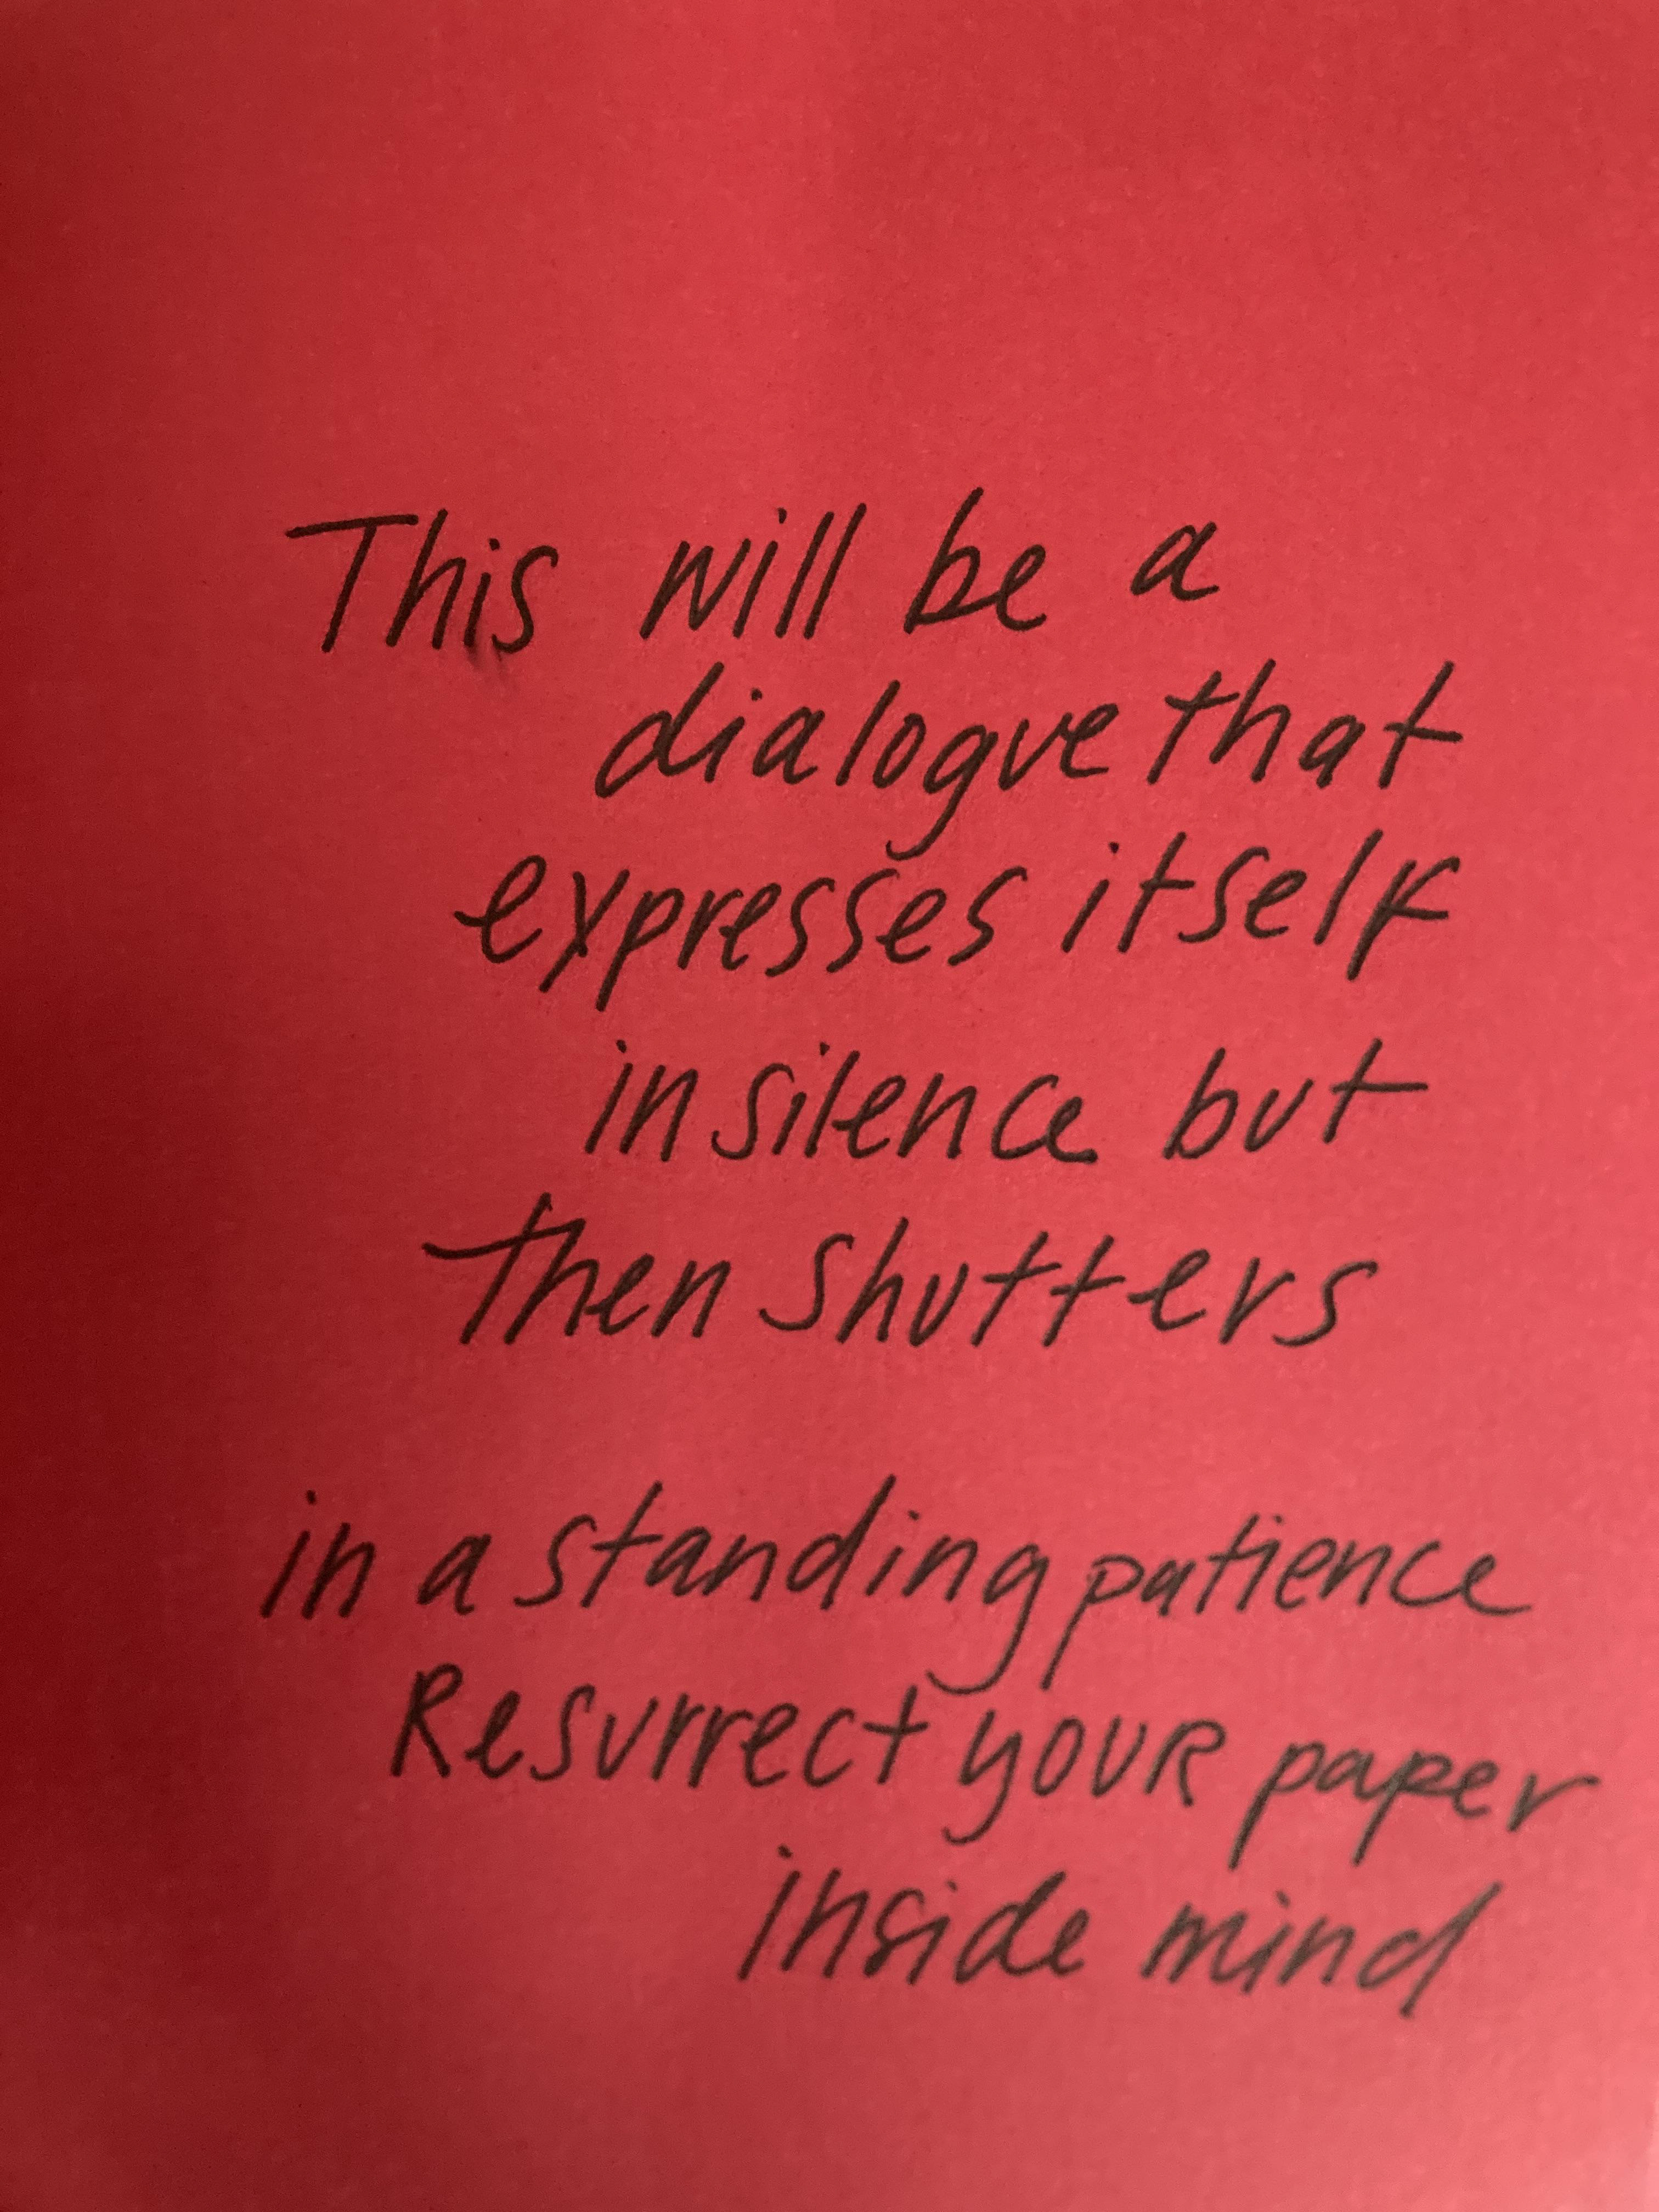 This will be a
dialogue that
expresses itself
in silence but
then shutters
in a standing patience
Resurrect youR paper
inside mind